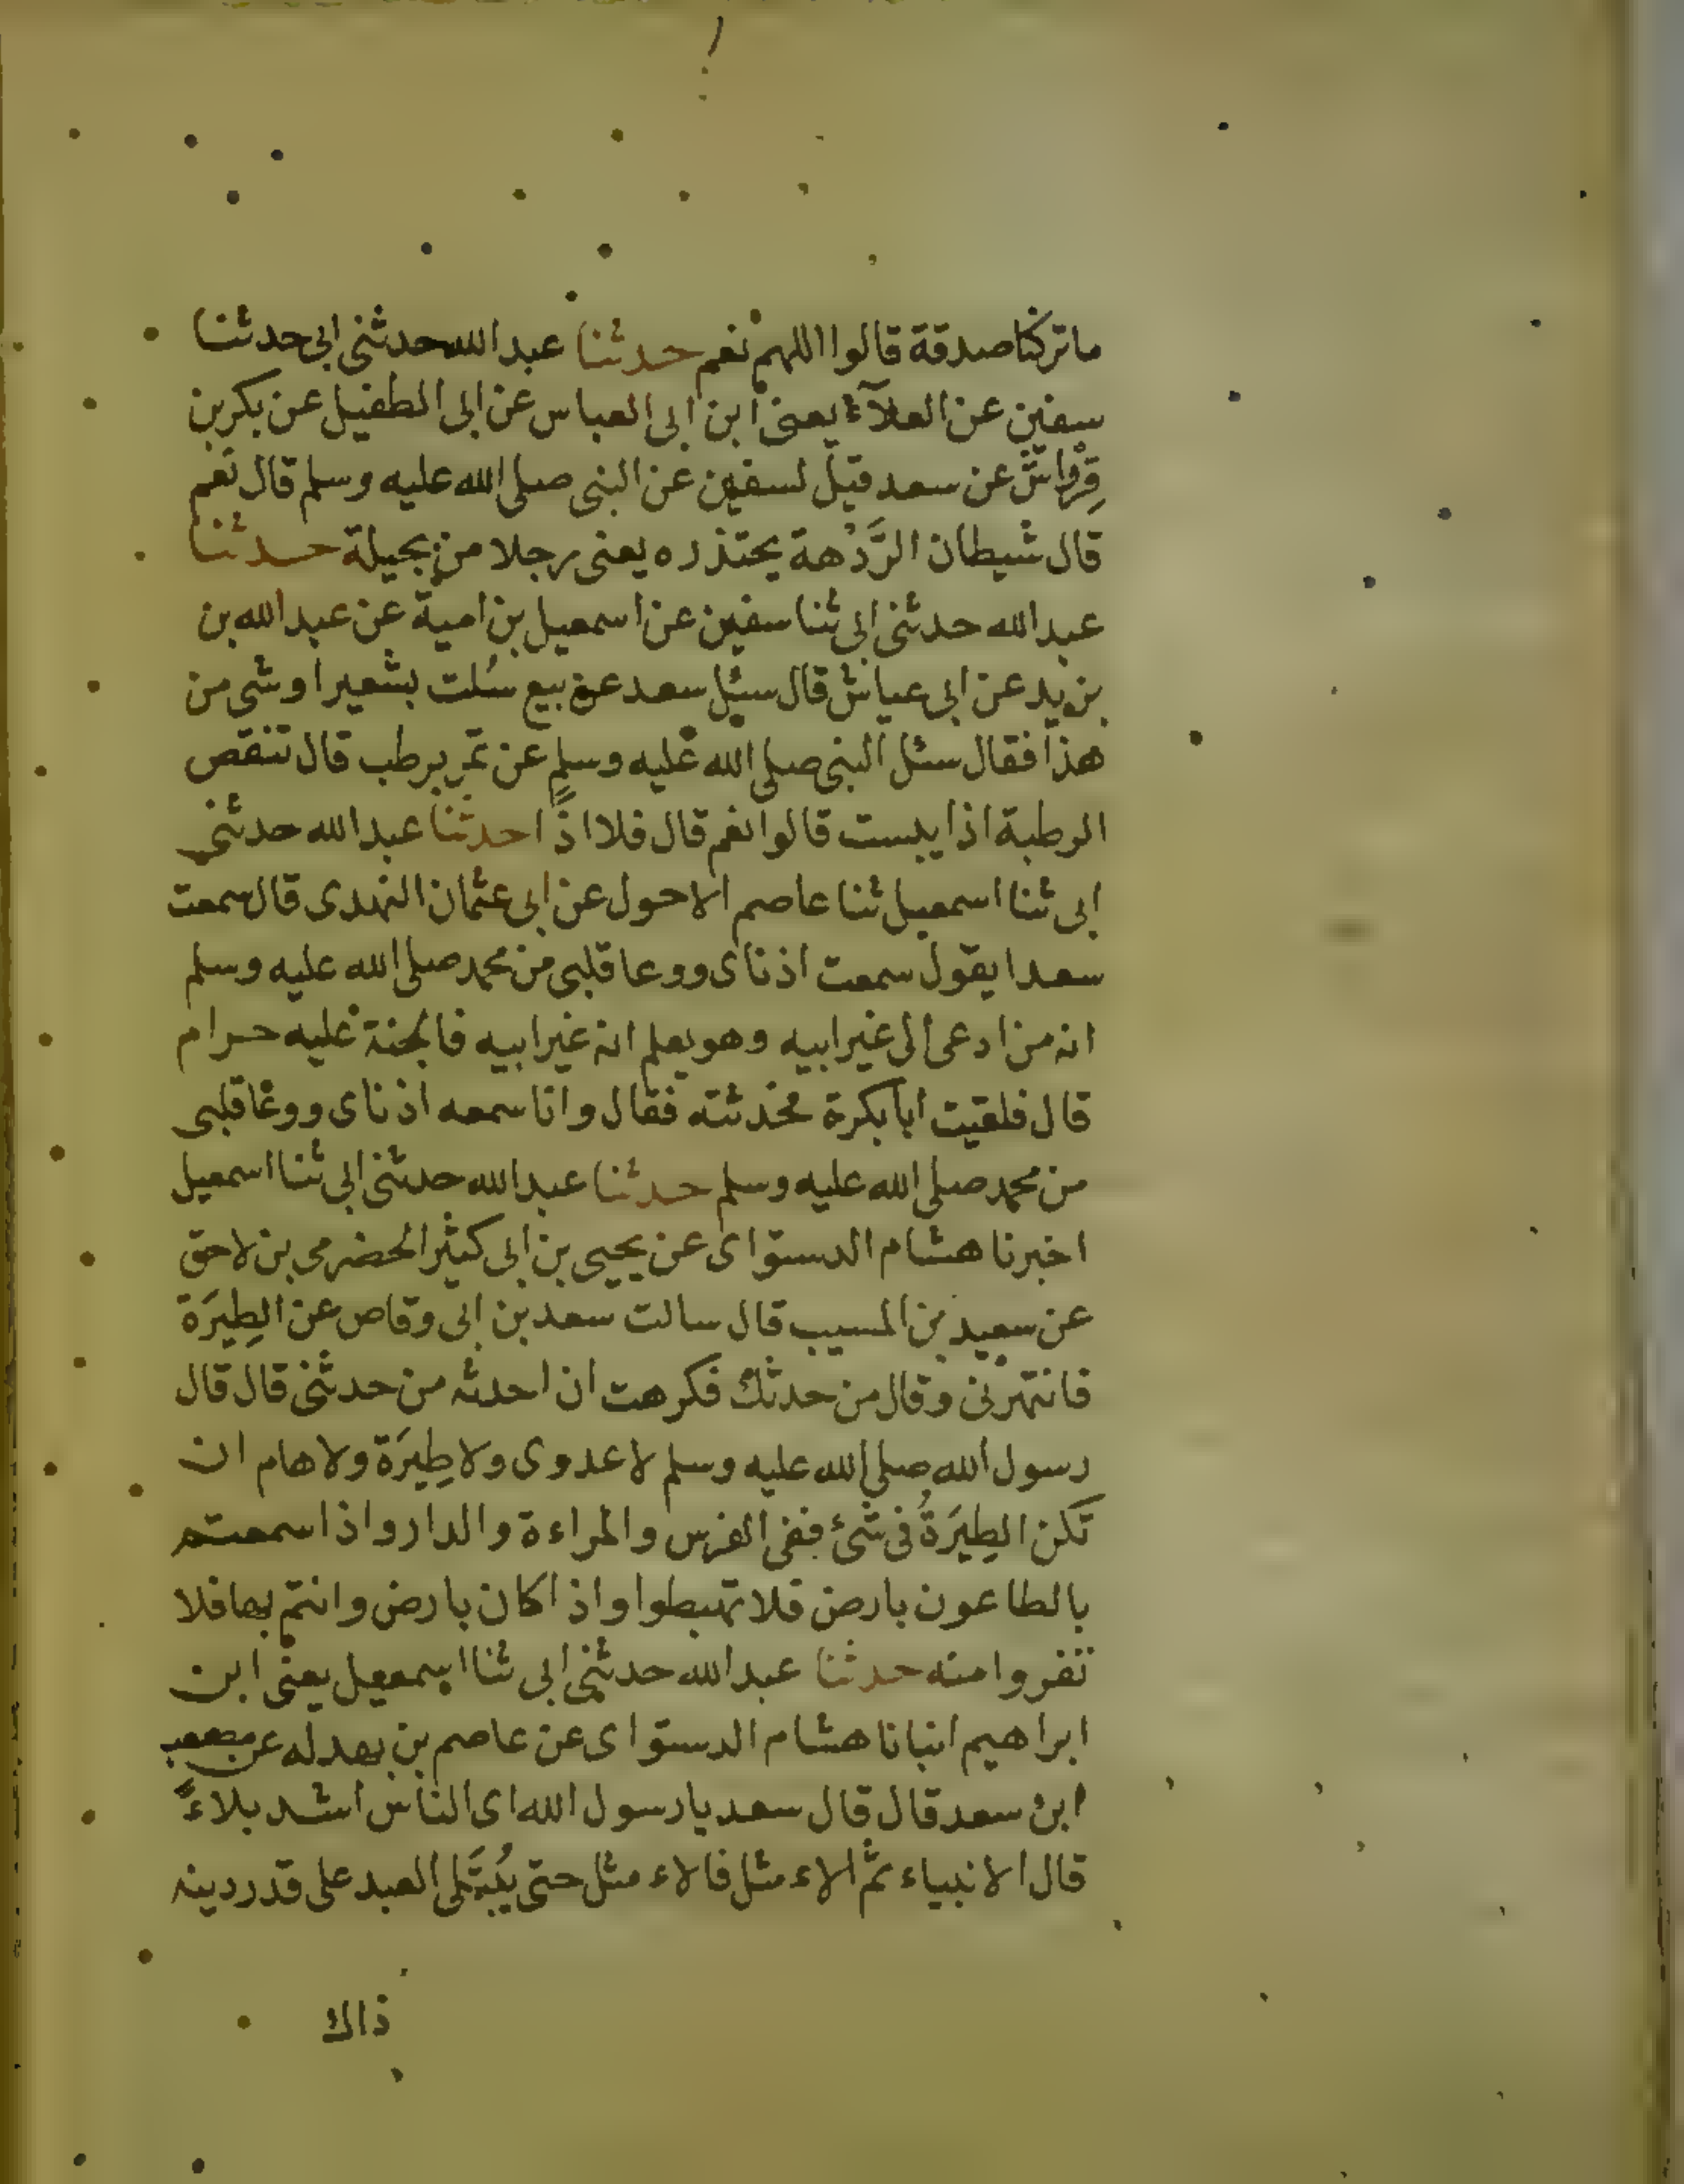 ما تركنا صدقة قالوا اللهم نعم حدثنا عبد الله حدثنى ابى حدثنا
سفين عن العلآء يعنى ابن ابى العباس عن ابى الطفيل عن بكر بن
قِرْواش عن سعد قيل لسفين عن النبى صلى الله عليه وسلم قال نعم
قال شيطان الرَّدْهة يحتذره يعنى رجلا من بجيلة حدثنا
عبد الله حدثنى ابى ثنا سفين عن اسمعيل بن امية عن عبد الله بن
يزيد عن ابى عياش قال سئل سعد عن بيع سُلت بشعير او شى من
هذا فقال سئل النبى صلى الله عليه وسلم عن تمر برطب قال تنقص
الرطبة اذا يبست قالوا نعم قال فلا اذًا حدثنا عبد الله حدثنى
ابى ثنا اسمعيل ثنا عاصم الاحول عن ابى عثمان النهدى قال سمعت
سعدا يقول سمعت اذناى ووعا قلبى من محمد صلى الله عليه وسلم
انه من ادعى الى غير ابيه وهو يعلم انه غير ابيه فالجنة عليه حرام
قال فلقيت ابا بكرة فحدثته فقال وانا سمعه اذناى ووعا قلبى
من محمد صلى الله عليه وسلم حدثنا عبد الله حدثنى ابى ثنا اسمعيل
اخبرنا هشام الدستواى عن يحيى بن ابى كثير الحضرمى بن لاحق
عن سعيد بن المسيب قال سالت سعد بن ابى وقاص عن الطِيَرَة
فانتهرنى وقال من حدثك فكرهت ان احدثه من حدثنى قال قال
رسول الله صلى الله عليه وسلم لا عدوى ولا طِيَرَة ولا هام ان
تكن الطِيَرَةُ فى شئ ففى الفرس والمراءة والدار واذا سمعتم
بالطاعون بارض فلا تهبطوا واذا كان بارض وانتم بها فلا
تفروا منه حدثنا عبد الله حدثنى ابى ثنا اسمعيل يعنى ابن
ابراهيم انبانا هشام الدستواى عن عاصم بن بهدله عن مصعب
ابن سعد قال قال سعد يا رسول الله اى الناس اشد بلاءً
قال الانبياء ثم الاء مثل فالاء مثل حتى يُبتَلى العبد على قدر دينه
ذاك